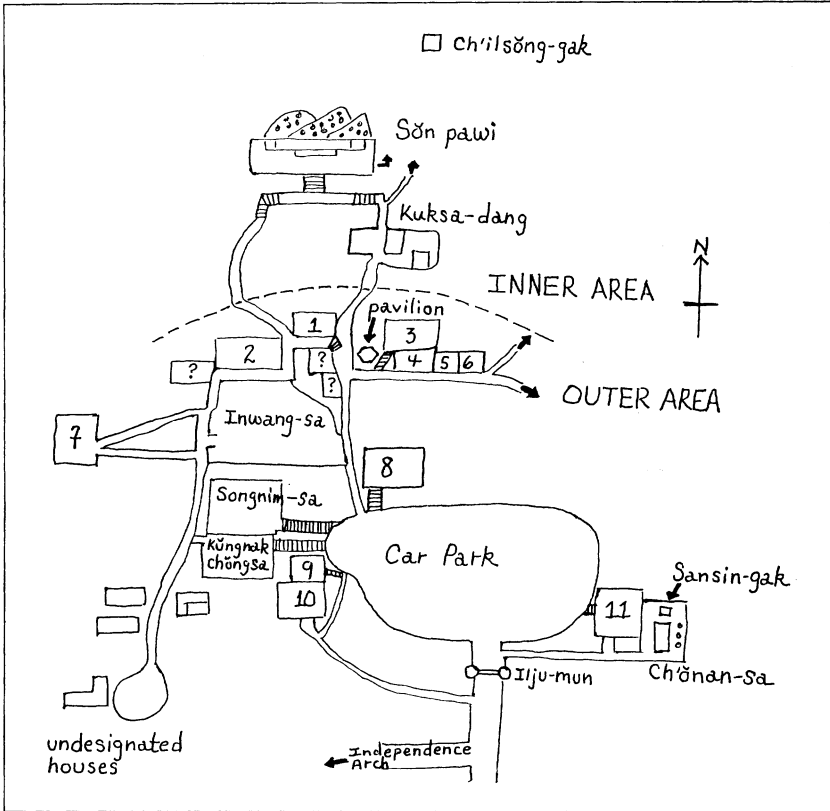 Ch'ilsŏng-gak
Sŏn pawi
Kuksa-dang
N
INNER AREA
pavilion
1
3
2
?
?
4
5
6
?
OUTER AREA
Inwang-sa
7
8
Songnim-sa
Kŭngnak
chŏngsa
Car Park
9
10
Sansin-gak
11
Ilju-mun
Ch'ŏnan-sa
undesignated
houses
Independence
Arch